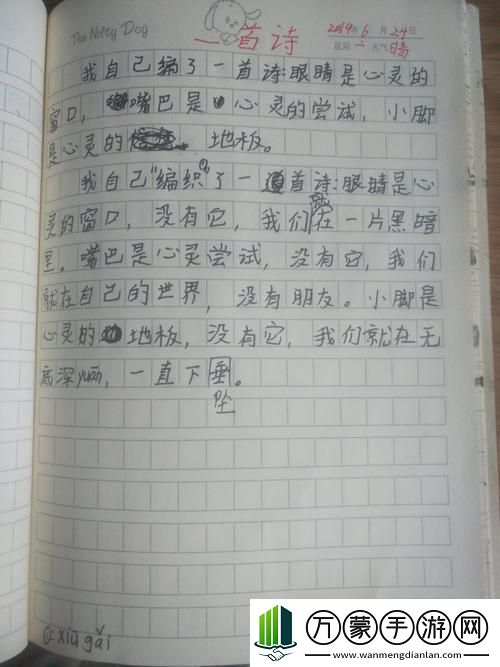 The Nifty Dog
一首诗
2019年6月24日
星期二 天气晴
我自己编了一首诗:眼睛是心灵的
窗口，嘴巴是心灵的尝试，小脚
是心灵的 地板。
我自己"编织"①了一首诗:眼睛是心
灵的窗口，没有它，我们就在一片黑暗
里。嘴巴是心灵尝试，没有它，我们
就在自己的世界，没有朋友。小脚是
心灵的地板，没有它，我们就在无
底深yuān，一直下垂。
坠
①:xiū gǎi
万蒙手游网
www.wanmengdianlan.com